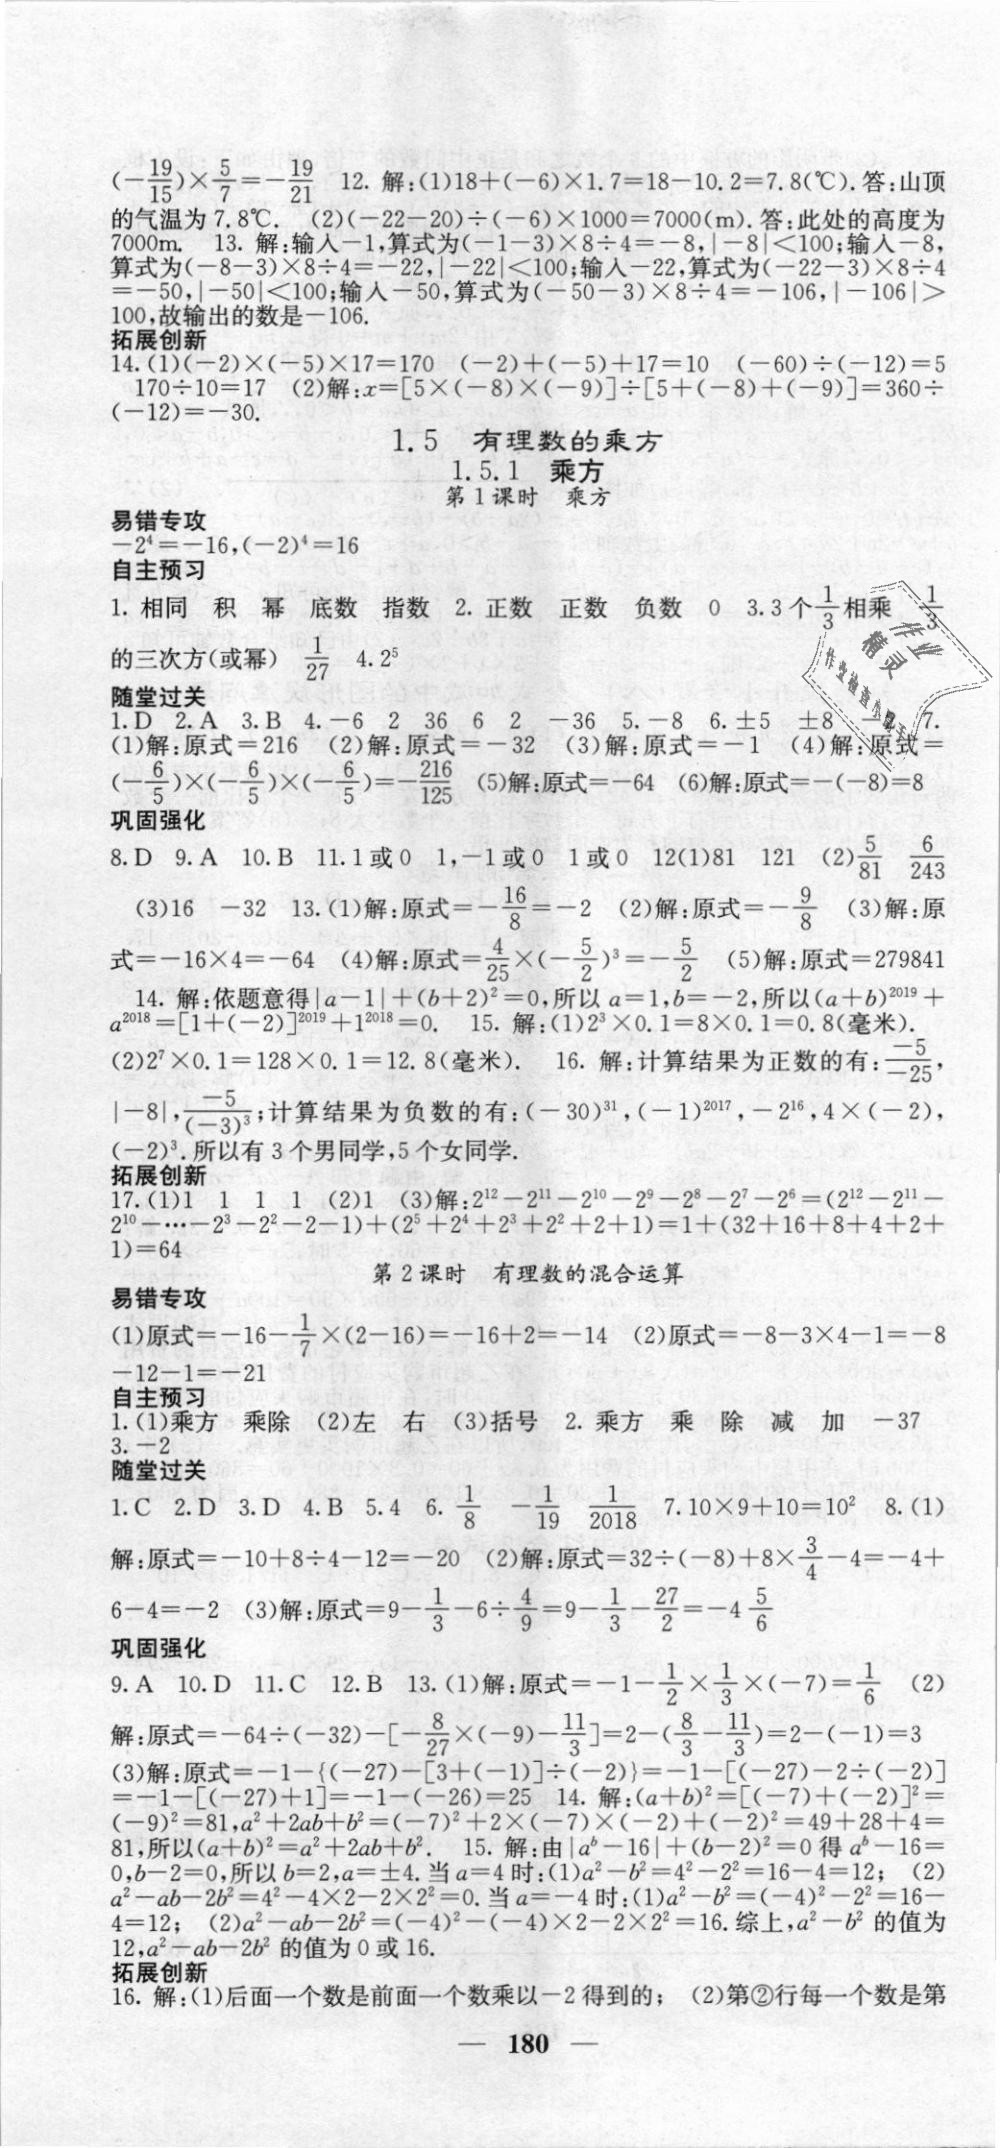 (−19/15)×5/7=−19/21 12. 解:(1)18+(−6)×1.7=18−10.2=7.8(℃).答:山顶
的气温为7.8℃. (2)(−22−20)÷(−6)×1000=7000(m).答:此处的高度为
7000m. 13. 解:输入−1,算式为(−1−3)×8÷4=−8,|−8|<100;输入−8,
算式为(−8−3)×8÷4=−22,|−22|<100;输入−22,算式为(−22−3)×8÷4
=−50,|−50|<100;输入−50,算式为(−50−3)×8÷4=−106,|−106|>
100,故输出的数是−106.
拓展创新
14.(1)(−2)×(−5)×17=170 (−2)+(−5)+17=10 (−60)÷(−12)=5
170÷10=17 (2)解:x=[5×(−8)×(−9)]÷[5+(−8)+(−9)]=360÷
(−12)=−30.
1.5 有理数的乘方
1.5.1 乘方
第1课时 乘方
易错专攻
−2⁴=−16,(−2)⁴=16
自主预习
1. 相同 积 幂 底数 指数 2. 正数 正数 负数 0 3.3个1/3相乘 1/3
的三次方(或幂) 1/27 4.2⁵
随堂过关
1.D 2.A 3.B 4.−6 2 36 6 2 −36 5.−8 6.±5 ±8 7.
(1)解:原式=216 (2)解:原式=−32 (3)解:原式=−1 (4)解:原式=
(−6/5)×(−6/5)×(−6/5)=−216/125 (5)解:原式=−64 (6)解:原式=−(−8)=8
巩固强化
8.D 9.A 10.B 11.1或0 1,−1或0 1或0 12(1)81 121 (2)5/81 6/243
(3)16 −32 13.(1)解:原式=−16/8=−2 (2)解:原式=−9/8 (3)解:原
式=−16×4=−64 (4)解:原式=4/25×(−5/2)³=−5/2 (5)解:原式=279841
14. 解:依题意得|a−1|+(b+2)²=0,所以a=1,b=−2,所以(a+b)²⁰¹⁹+
a²⁰¹⁸=[1+(−2)]²⁰¹⁹+1²⁰¹⁸=0. 15. 解:(1)2³×0.1=8×0.1=0.8(毫米).
(2)2⁷×0.1=128×0.1=12.8(毫米). 16. 解:计算结果为正数的有:−5/−25,
|−8|,−5/(−3)³;计算结果为负数的有:(−30)³¹,(−1)²⁰¹⁷,−2¹⁶,4×(−2),
(−2)³.所以有3个男同学,5个女同学.
拓展创新
17.(1)1 1 1 1 (2)1 (3)解:2¹²−2¹¹−2¹⁰−2⁹−2⁸−2⁷−2⁶=(2¹²−2¹¹−
2¹⁰−…−2³−2²−2−1)+(2⁵+2⁴+2³+2²+2+1)=1+(32+16+8+4+2+
1)=64
第2课时 有理数的混合运算
易错专攻
(1)原式=−16−1/7×(2−16)=−16+2=−14 (2)原式=−8−3×4−1=−8
−12−1=−21
自主预习
1.(1)乘方 乘除 (2)左 右 (3)括号 2. 乘方 乘 除 减 加 −37
3.−2
随堂过关
1.C 2.D 3.D 4.B 5.4 6.1/8 −1/19 1/2018 7.10×9+10=10² 8.(1)
解:原式=−10+8÷4−12=−20 (2)解:原式=32÷(−8)+8×3/4−4=−4+
6−4=−2 (3)解:原式=9−1/3−6÷4/9=9−1/3−27/2=−4 5/6
巩固强化
9.A 10.D 11.C 12.B 13.(1)解:原式=−1−1/2×1/3×(−7)=1/6 (2)
解:原式=−64÷(−32)−[−8/27×(−9)−11/3]=2−(8/3−11/3)=2−(−1)=3
(3)解:原式=−1−{(−27)−[3+(−1)]÷(−2)}=−1−[(−27)−2÷(−2)]
=−1−[(−27)+1]=−1−(−26)=25 14. 解:(a+b)²=[(−7)+(−2)]²=
(−9)²=81,a²+2ab+b²=(−7)²+2×(−7)×(−2)+(−2)²=49+28+4=
81,所以(a+b)²=a²+2ab+b². 15. 解:由|aᵇ−16|+(b−2)²=0得aᵇ−16=
0,b−2=0,所以b=2,a=±4.当a=4时:(1)a²−b²=4²−2²=16−4=12; (2)
a²−ab−2b²=4²−4×2−2×2²=0.当a=−4时:(1)a²−b²=(−4)²−2²=16−
4=12; (2)a²−ab−2b²=(−4)²−(−4)×2−2×2²=16.综上,a²−b²的值为
12,a²−ab−2b²的值为0或16.
拓展创新
16. 解:(1)后面一个数是前面一个数乘以−2得到的; (2)第②行每一个数是第
— 180 —
作业
精灵
作业检查小